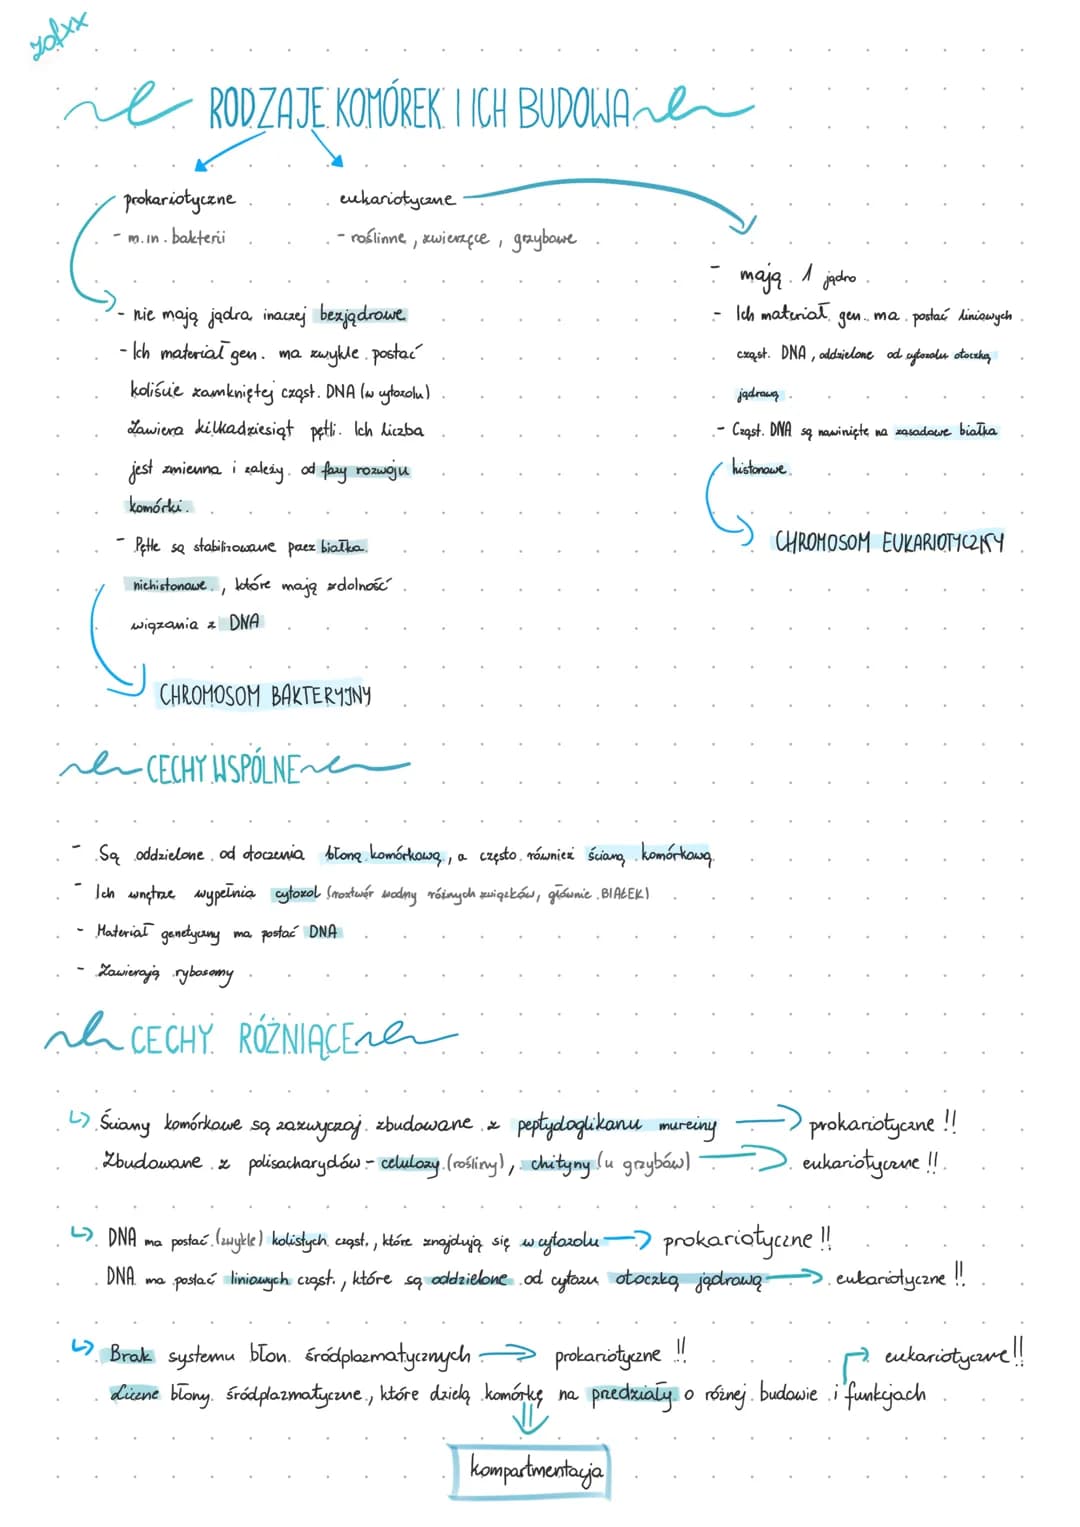 zofxx
RODZAJE KOMÓREK I ICH BUDOWA
prokariotyczne
- m.in. bakterii
eukariotyczne
- roślinne, zwierzęce, grzybowe
- nie mają jądra inaczej bezjądrowe
- Ich materiał gen. ma zwykle postać
koliście zamkniętej cząst. DNA (w cytozolu)
Zawiera kilkadziesiąt pętli. Ich liczba
jest zmienna i zależy od fazy rozwoju
komórki.
- Pętle są stabilizowane przez białka
niehistonowe, które mają zdolność
wiązania z DNA
CHROMOSOM BAKTERYJNY
- mają 1 jądro
- Ich materiał gen. ma postać liniowych
cząst. DNA, oddzielone od cytozolu otoczką
jądrową
- Cząst. DNA są nawinięte na zasadowe białka
histonowe.
CHROMOSOM EUKARIOTYCZNY
CECHY WSPÓLNE
- Są oddzielone od otoczenia błoną komórkową, a często również ścianą komórkową
- Ich wnętrze wypełnia cytozol (roztwór wodny różnych związków, głównie BIAŁEK)
- Materiał genetyczny ma postać DNA
- Zawierają rybosomy
CECHY RÓŻNIĄCE
↳ Ściany komórkowe są zazwyczaj zbudowane z peptydoglikanu mureiny → prokariotyczne !!
Zbudowane z polisacharydów - celulozy (rośliny), chityny (u grzybów) → eukariotyczne !!
↳ DNA ma postać (zwykle) kolistych cząst., które znajdują się w cytozolu → prokariotyczne !!
DNA ma postać liniowych cząst., które są oddzielone od cytozu otoczką jądrową → eukariotyczne !!
↳ Brak systemu błon śródplazmatycznych → prokariotyczne !!
→ eukariotyczne !!
Liczne błony śródplazmatyczne, które dzielą komórkę na przedziały o różnej budowie i funkcjach
kompartmentacja